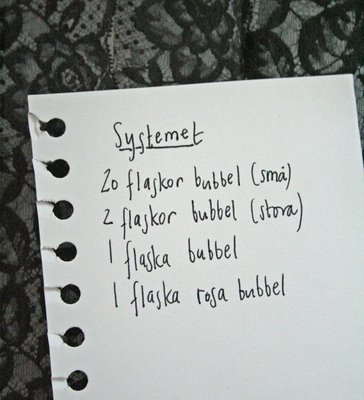 Systemet
20 flaskor bubbel (små)
2 flaskor bubbel (stora)
1 flaska bubbel
1 flaska rosa bubbel